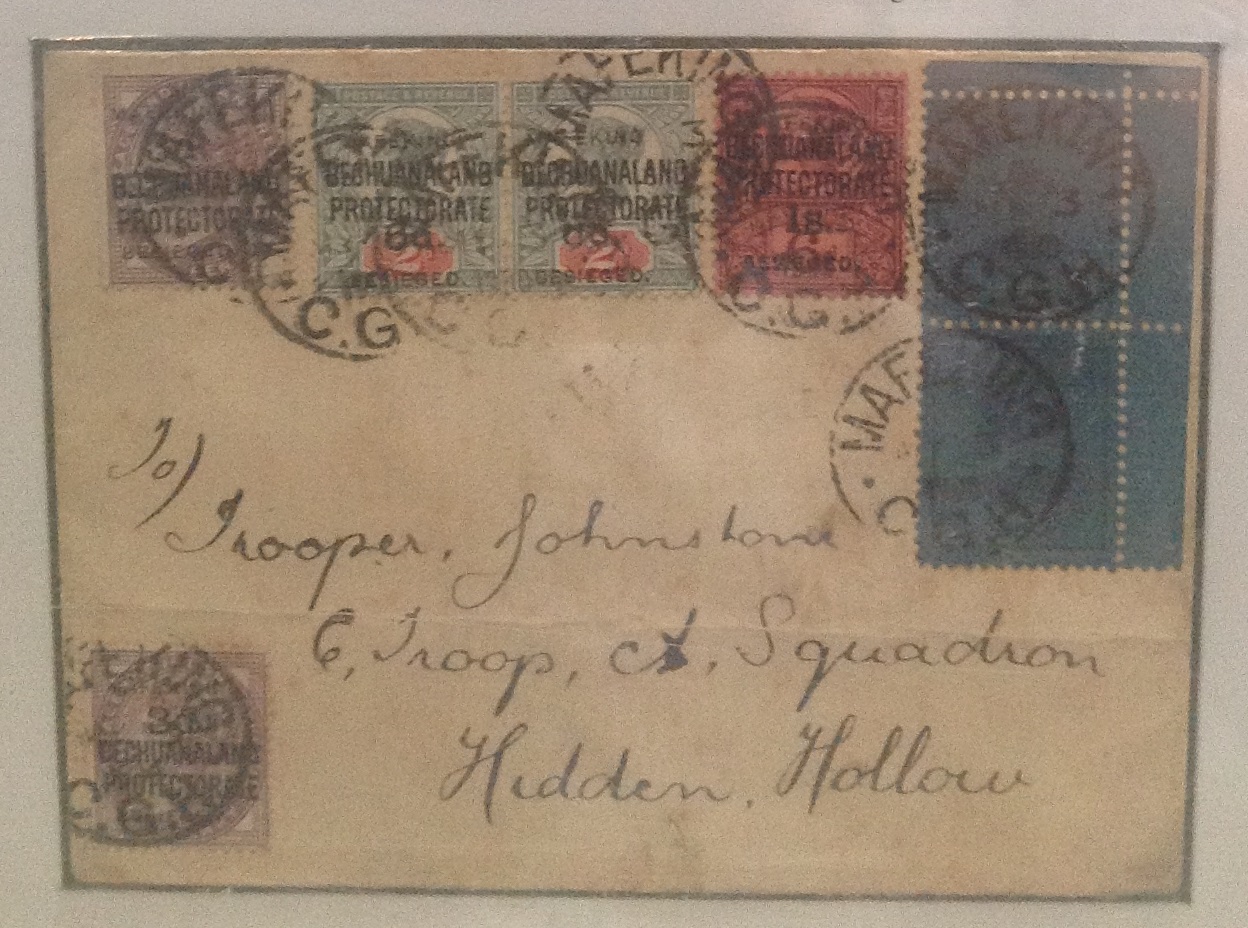 MAFEKING
C.G.H.
BECHUANALAND
PROTECTORATE
BESIEGED.
C.G
BECHUANALAND
PROTECTORATE
6d.
2
BESIEGED.
BECHUANALAND
PROTECTORATE
6d.
2
BESIEGED.
BECHUANALAND
PROTECTORATE
1s.
6
BESIEGED.
MAFEKING
C.G.H
MAFEKING
To)
Trooper, Johnstone
C, Troop, A, Squadron
Hidden, Hollow
3d.
BECHUANALAND
PROTECTORATE
C.G.H